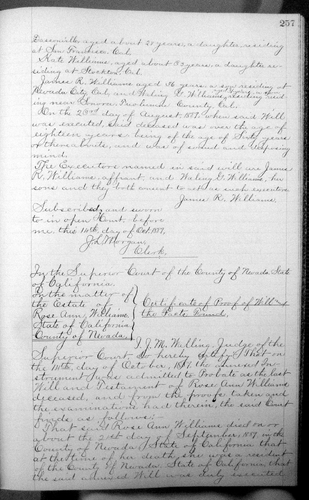 257
aged about 27 years, a daughter, residing
at San Francisco, Cal.
Kate Williams, aged about 32 years, a daughter re-
siding at Stockton, Cal.
James R. Williams aged 36 years a son residing at
Nevada City Cal. and Williams,
ing near Sonora Tuolumne County, Cal.
On the 23rd day of August 1887 when said Will
was executed, said deceased was over the age of
eighteen years: being of the age of years
or thereabouts, and was of sound and disposing
mind.
The Executors named in said will are James
R. Williams, affiant, and Williams, her
sons and they both consent to act as such executors
James R. Williams
Subscribed and sworn
to in open Court, before
me this 14th day of Oct. 1887,
J. L. Morgan,
Clerk,
In the Superior Court of the County of Nevada State
of California
In the matter of
the Estate of
Rose Ann Williams
State of California
County of Nevada
Certificate of Proof of Will and
the Facts Found.
I, J. M. Walling, Judge of the
Superior Court do hereby certify: That on
the day of October, 1887, the annexed In-
strument was admitted to Probate as the last
Will and Testament of Rose Ann Williams
deceased, and from the proofs taken and
the examination had therein, the said Court
finds as follows:
That said Rose Ann Williams died on or
about the 21st day of September, 1887, in the
County of Nevada State of California that
at the time of her death she was a resident
of the County of Nevada, State of California, that
the said annexed Will was duly executed